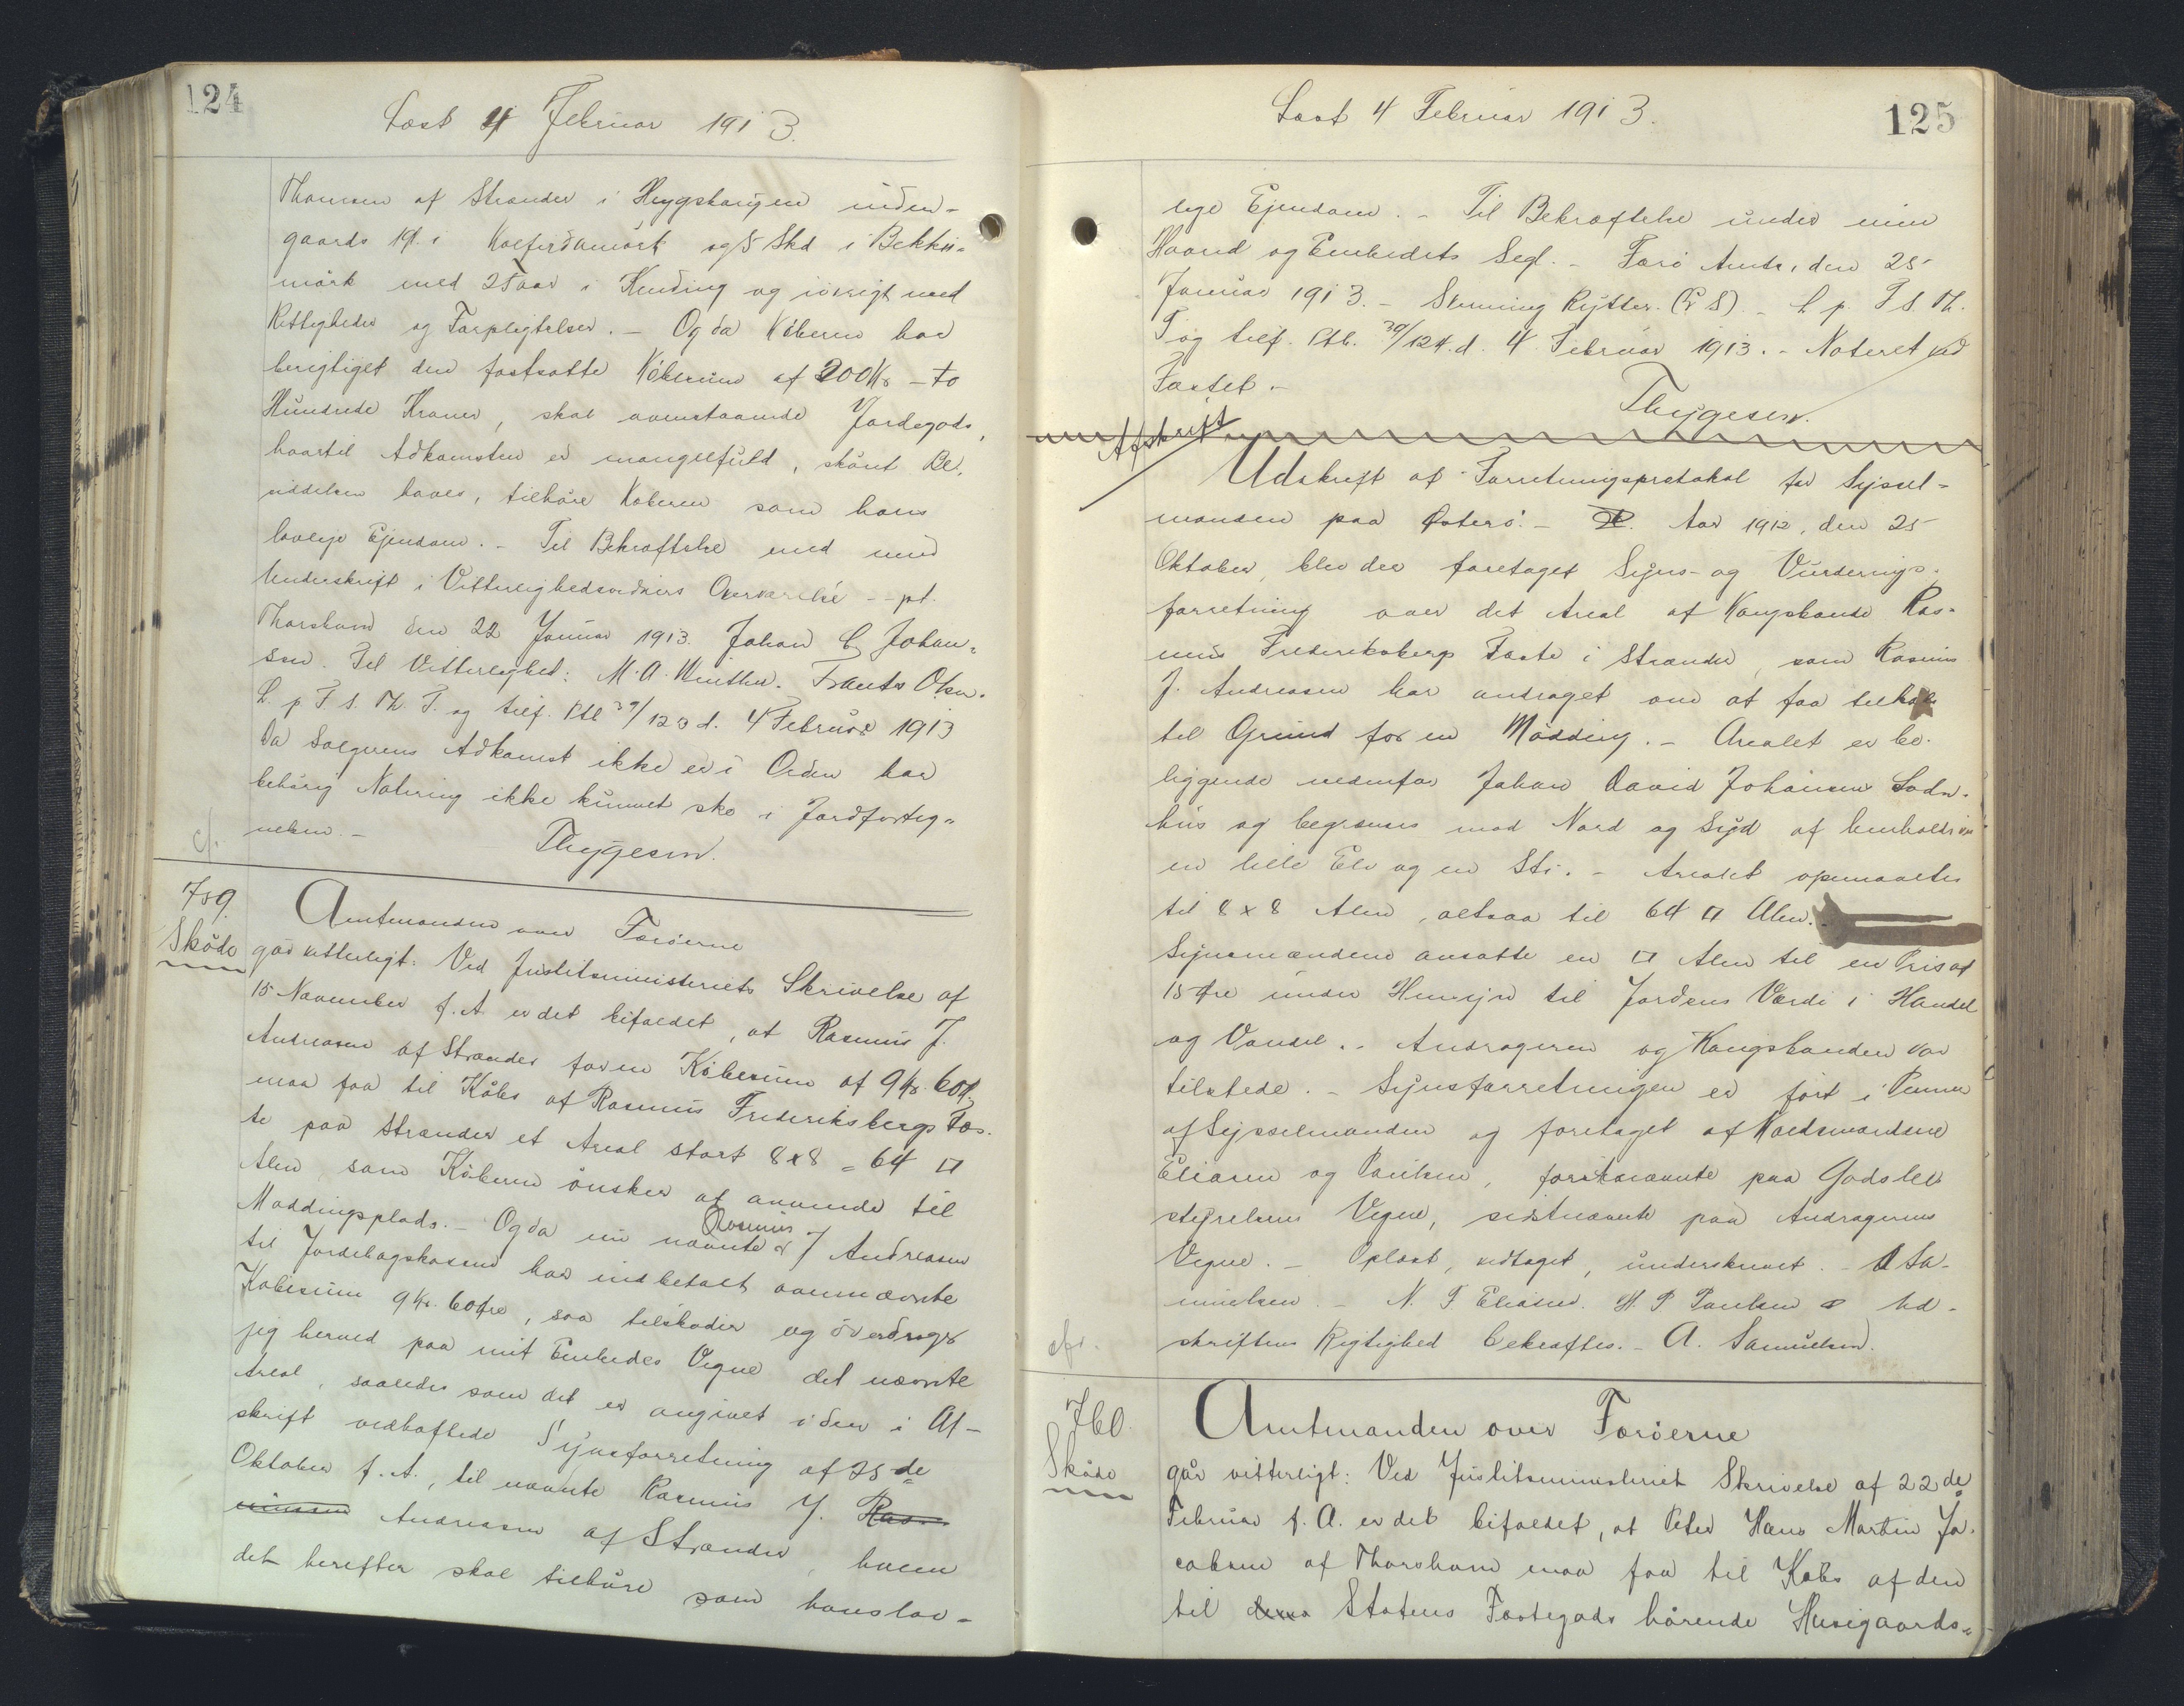 124
Læst 4 Februar 1913.
Thomsen af Strænder i Heygshaugen inden-
gaards 1 i Kvefirdamørk og 5 Skd i Bekku-
mørk med 2 Faar i Kending og iøvrigt med
Rettigheder og Forpligtelser. – Og da Køberen har
berigtiget den fastsatte Købesum af 200 Kr – to
Hundrede Kroner, skal ovenstaaende Jordegods,
hvortil Adkomsten er mangelfuld, skønt Be-
siddelsen haves, tilhøre Køberen som hans
lovlige Ejendom. – Til Bekræftelse med min
Underskrift i Vitterlighedsvidners Overværelse – pt.
Thorshavn den 22 Januar 1913. Johan C Johan-
sen. Til Vitterlighed: M. A. Winther. Frants Olsen.
L. p. F. S. Th. T. og tilf. Ptl 39/123 d. 4 Februar 1913
Da Sælgerens Adkomst ikke er i Orden har
behørig Notering ikke kunnet ske i Jordforteg-
nelsen. –
Thygesen.
cf.
759.
Skøde
Amtmanden over Færøerne
gør vitterligt: Ved Justitsministeriets Skrivelse af
15 November f. A. er det bifaldet, at Rasmus J.
Andreasen af Strænder for en Købesum af 9 Kr. 60 Ø.
maa faa til Købs af Rasmus Frederiksbergs Fæs-
te paa Strænder et Areal stort 8x8 = 64 □
Alen som Køberen ønsker at anvende til
Møddingsplads. – Og da nu nævnte Rasmus J Andreasen
til Jordebogskassen har indbetalt ovennævnte
Købesum 9 Kr. 60 Øre, saa tilskøder og overdrager
jeg herved paa mit Embedes Vegne det nævnte
Areal, saaledes som det er angivet i den i Af-
skrift vedhæftede Synsforretning af 25de
Oktober f. A., til nævnte Rasmus J. Ras-
mussen Andreasen af Strænder, hvem
det herefter skal tilhøre som hans lov-
125
Læst 4 Februar 1913.
lige Ejendom. – Til Bekræftelse under min
Haand og Embedets Segl. – Færø Amt, den 25
Januar 1913. – Svenning Rytter. (L S). – L p. F. S. Th.
T og tilf. Ptl. 39/124. d. 4 Februar 1913. – Noteret ved
Fæstet. –
Thygesen.
Afskrift
Udskrift af Forretningsprotokol for Syssel-
manden paa Østerø. – Aar 1912, den 25
Oktober, blev der foretaget Syns- og Vurderings-
forretning over det Areal af Kongsbonde Ras-
mus Frederiksbergs Fæste i Strænder, som Rasmus
J. Andreasen har andraget om at faa tilkøbs
til Grund for en Mødding. – Arealet er be-
liggende nedenfor Johan David Johansens Lade-
hus og begrænses mod Nord og Syd af henholdsvis
en lille Elv og en Sti. – Arealet opmaaltes
til 8 x 8 Alen, altsaa til 64 □ Alen. –
Synsmændene ansatte en □ Alen til en Pris af
15 Øre under Hensyn til Jordens Værdi i Handel
og Vandel. – Andrageren og Kongsbonden var
tilstede. – Synsforretningen er ført i Pennen
af Sysselmanden og foretaget af Voldsmændene
Eliasen og Poulsen, førstnævnte paa Godsbe-
styrelsens Vegne, sidstnævnte paa Andragerens
Vegne. – Oplæst, vedtaget, underskrevet. – A Sa-
muelsen. – N. F. Eliasen. H. P. Poulsen Ud-
skriftens Rigtighed bekræftes. – A. Samuelsen.
cfr.
760.
Skøde
Amtmanden over Færøerne
gør vitterligt: Ved Justitsministeriets Skrivelse af 22de
Februar f. A. er det bifaldet, at Peter Hans Martin Ja-
cobsen af Thorshavn maa faa til Købs af den
til Statens Fæstegods hørende Husigaards-